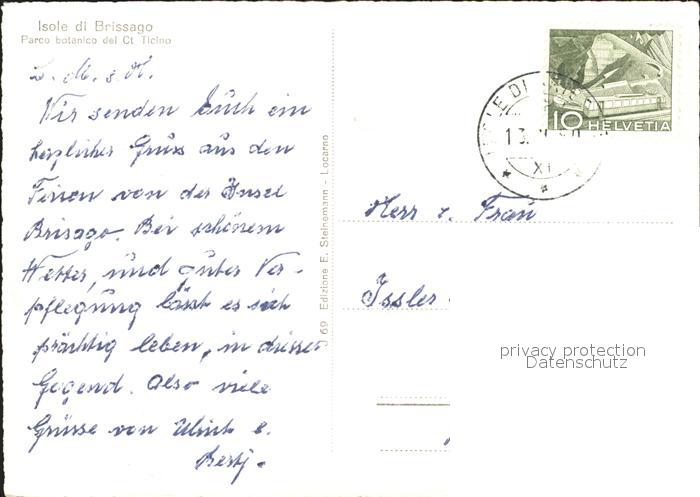 Isole di Brissago
Parco botanico del Ct Ticino
L. M. s. H.
Wir senden Euch ein
herzlicher Gruss aus den
Ferien von der Insel
Brisago. Bei schönem
Wetter, und guter Ver-
pflegung lässt es sich
prächtig leben, in dieser
Gegend. Also viele
Grüsse von Ulrich e.
Berty.
69 Edizione E. Steinemann - Locarno
ISOLE DI
13.
XI
10 HELVETIA
Herr e. Frau
Issler
privacy protection
Datenschutz